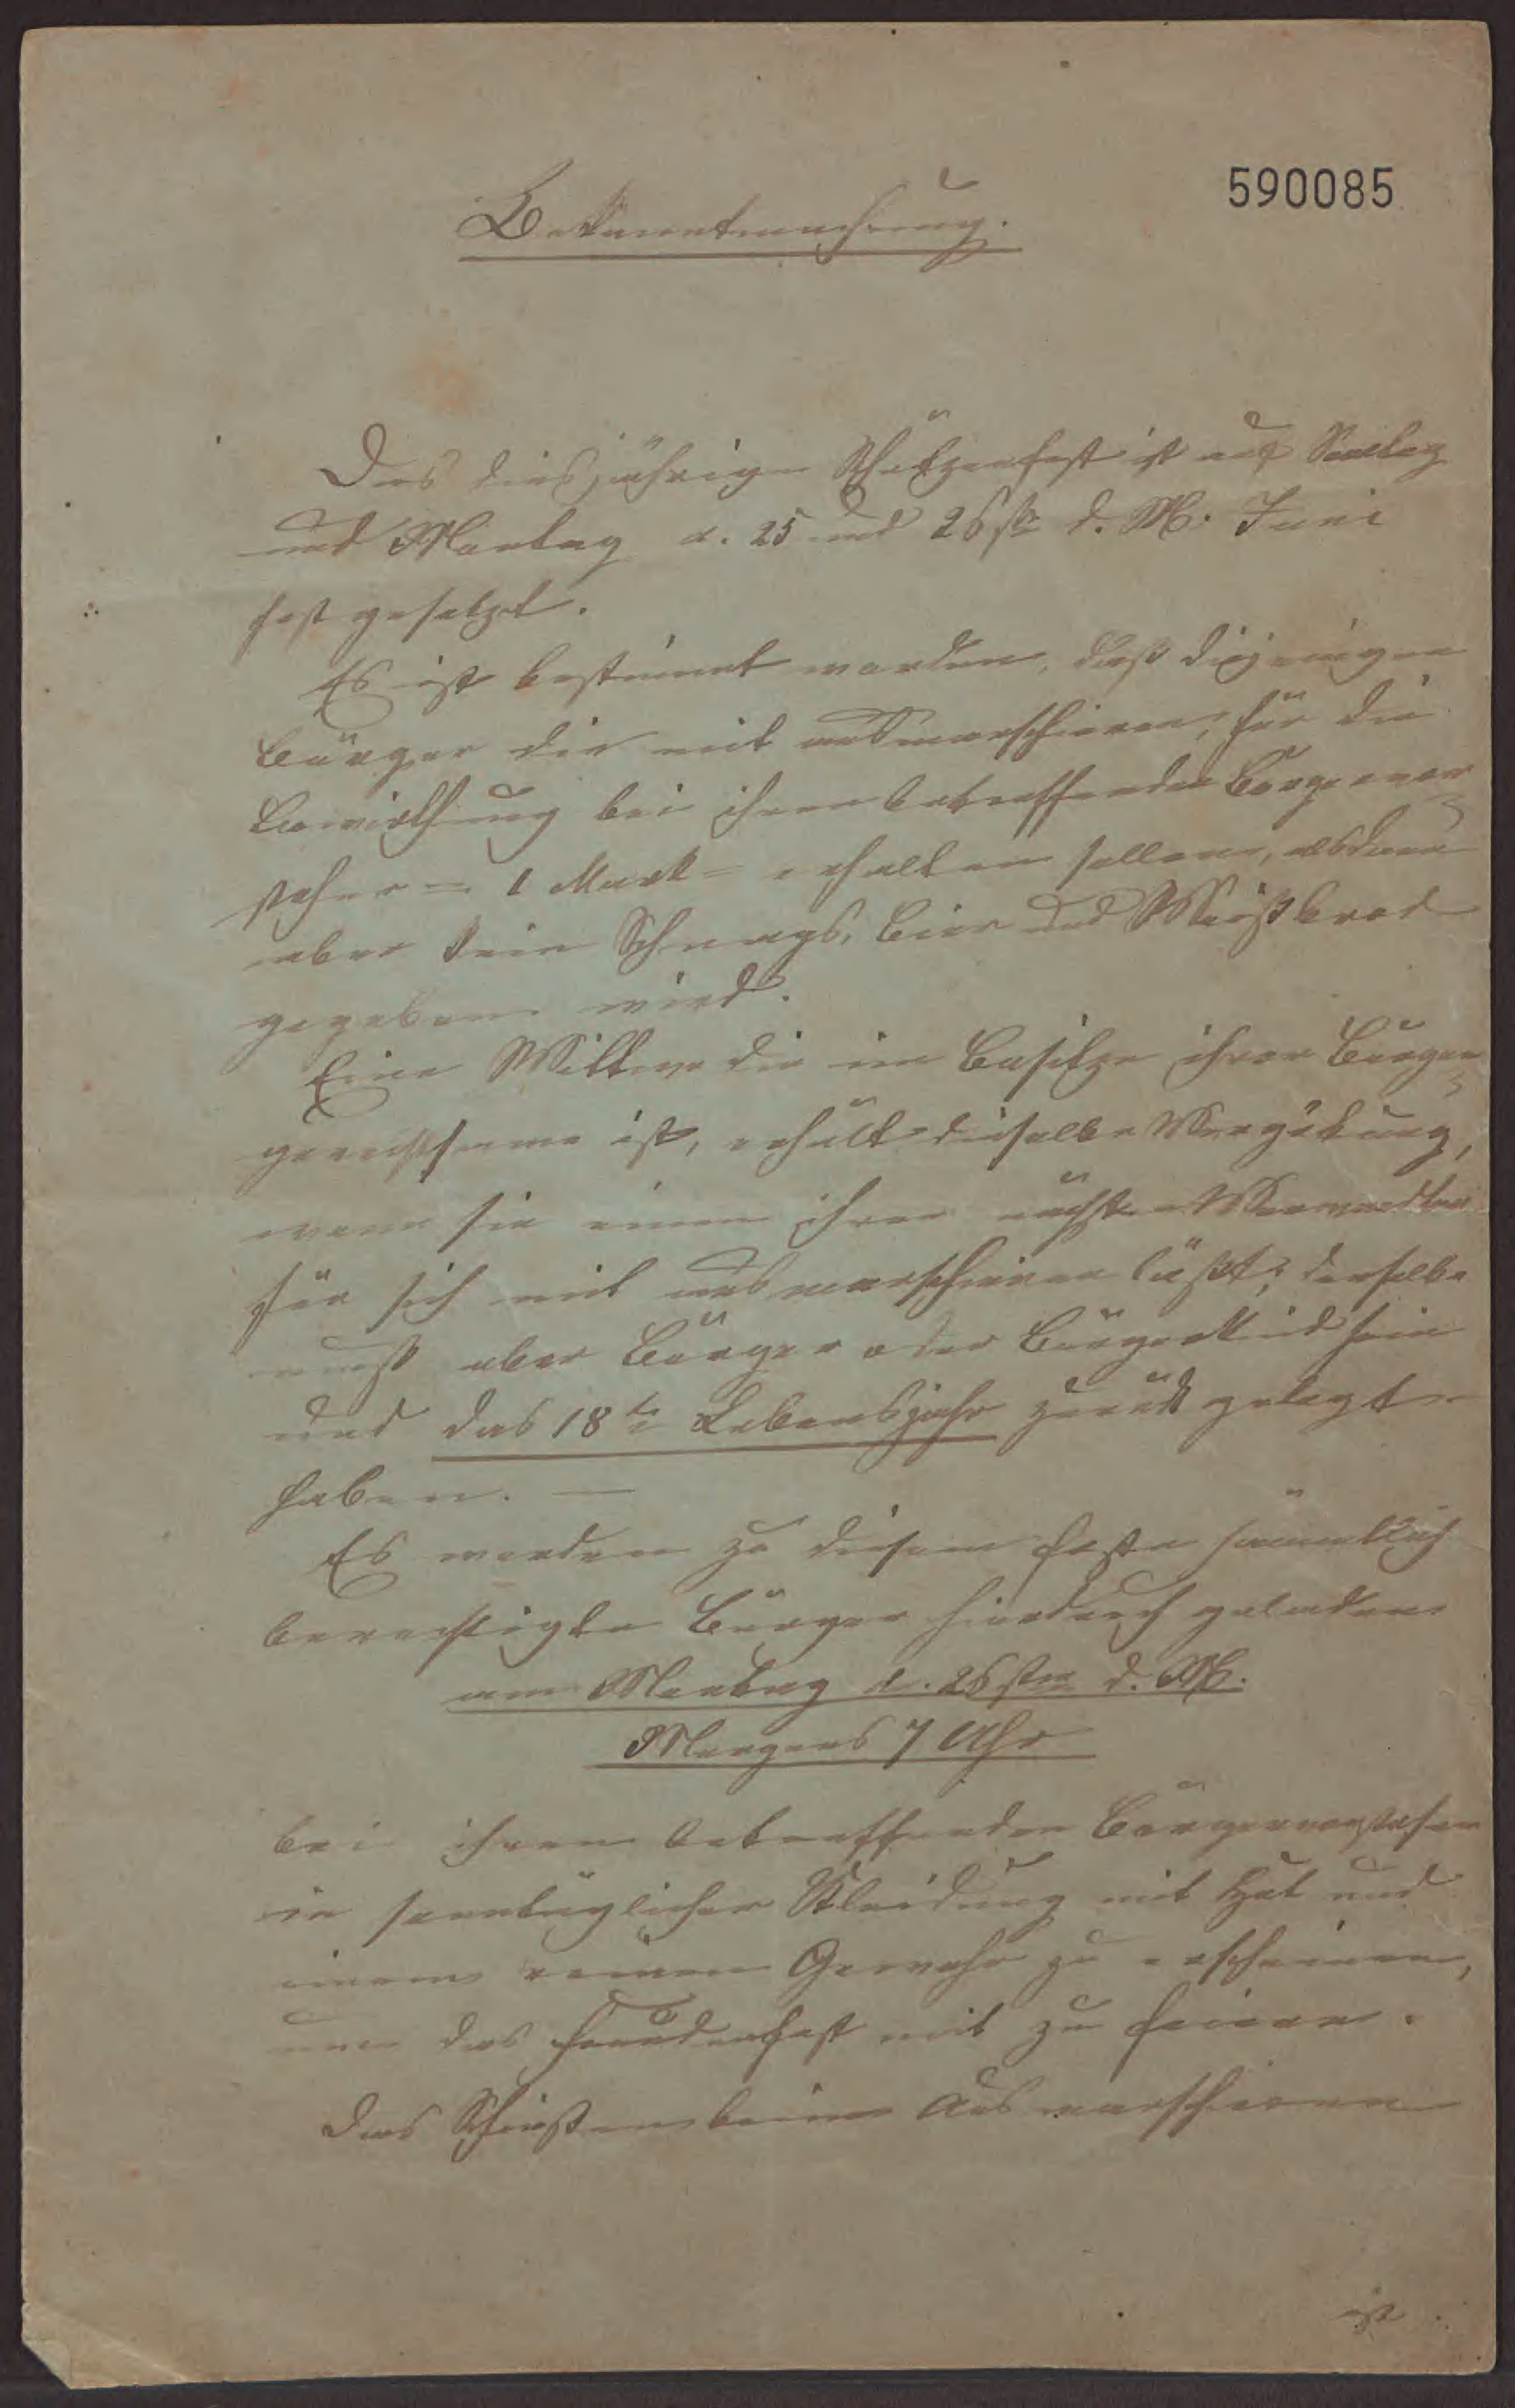 590085
Bekanntmachung.
Das diesjährige Schützenfest ist auf Sonntag
und Montag d. 25 und 26ste d. M. Juni
fest gesetzt.
Es ist bestimmt worden, daß diejenigen
Bürger die mit ausmarschieren, für die
Bewirthung bei ihren betreffenden Bürgervor-
steher = 1 Mark = erhalten sollen, alsdann
aber kein Schnaps, Bier und Weißbrod
gegeben wird.
Eine Wittwe die im Besitze ihrer Bürger-
gerechtsame ist, erhält dieselbe Vergütung,
wenn sie einen ihrer nächsten Verwandten
für sich mit ausmarschieren läßt; derselbe
muß aber Bürger oder Bürgerkind sein
und das 18te Lebensjahr zurück gelegt
haben. —
Es werden zu diesem Feste sämmtlich
berechtigte Bürger hierdurch geladen
am Montag d. 26sten d. M.
Morgens 7 Uhr
bei ihren betreffenden Bürgervorsteher
in sonntäglicher Kleidung mit Hut und
einem reinen Gewehr zu erscheinen,
um das Freudenfest mit zu feiern.
Das Schießen beim Ausmarschieren
ist